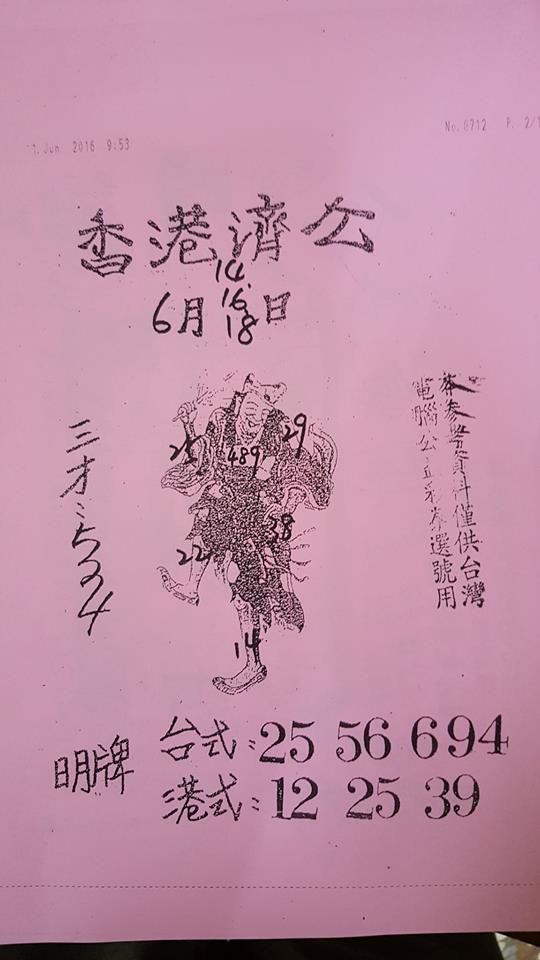 1.Jun 2016 9:53
No.0712 P. 2/1
香港濟公
14
6月16日
18
29
25
489
38
22
14
三才:
本參考資料僅供台灣
電腦公益彩券選號用
明牌
台式:25 56 694
港式:12 25 39